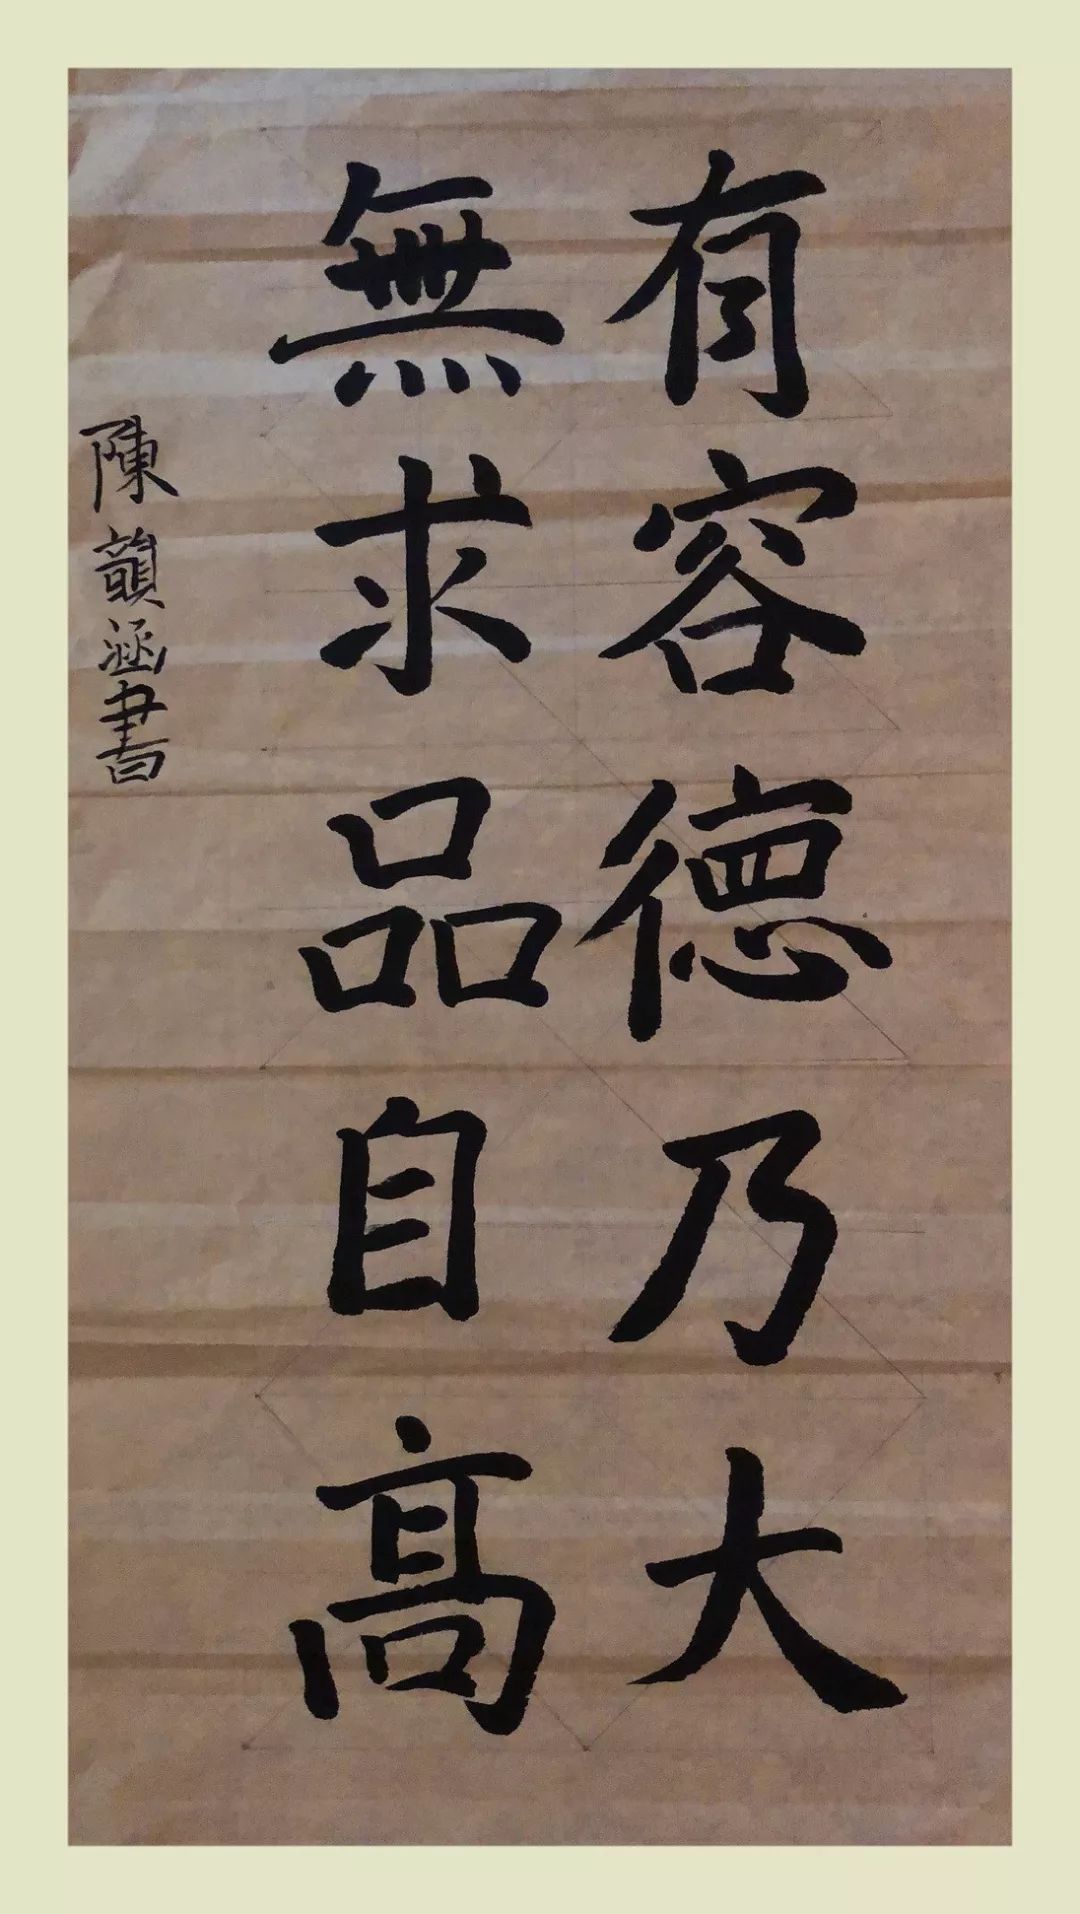 有容德乃大
無求品自高
陳韻涵書